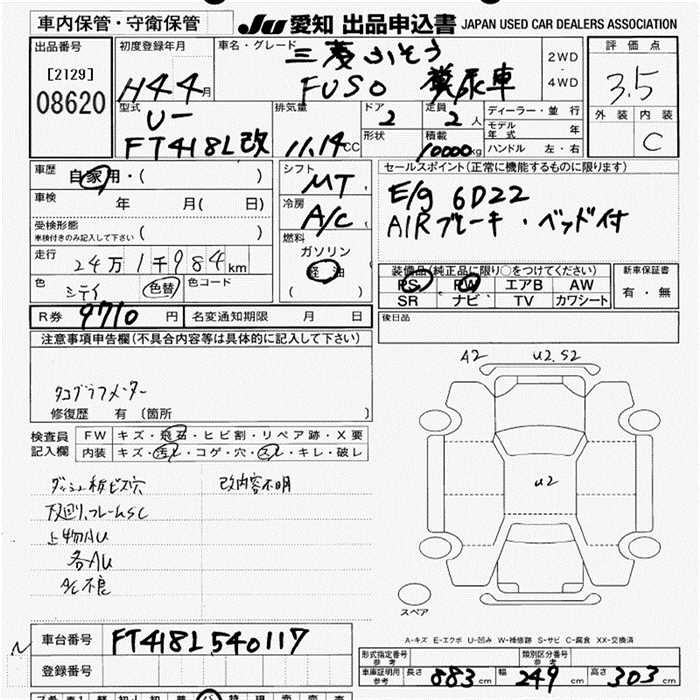 車内保管・守衛保管
JU 愛知 出品申込書 JAPAN USED CAR DEALERS ASSOCIATION
出品番号
[2129]
08620
初度登録年月
H4 4月
車名・グレード
三菱ふそう
FUSO 糞尿車
2WD
・
4WD
評価点
3.5
外装 内装
C
型式
U-
FT418L改
排気量
11.14CC
ドア
2
定員
2人
形状
積載
10000kg
ディーラー・並行
モデル年式 年
ハンドル 左・右
車歴
自家用・( )
車検 年 月( 日)
受検形態
車検付きのみ記入して下さい ( )
走行
24万1千984km
色
シテイ
色替
色コード
シフト
MT
冷房
A/C
燃料
ガソリン
軽油
( )
セールスポイント(正常に機能するものに限ります)
E/g 6D22
AIRブレーキ・ベッド付
装備品(純正品に限り○をつけてください)
PS PW エアB AW
SR ナビ TV カワシート
新車保証書
有・無
R券 9710円
名変通知期限 月 日
後日品
注意事項申告欄(不具合内容等は具体的に記入して下さい)
タコグラフメーター
修復歴 有 (箇所 )
検査員記入欄
FW キズ・飛石・ヒビ割・リペア跡・X要
内装 キズ・汚レ・コゲ・穴・スレ・キレ・破レ
ダッシュ板ビス穴
改内容不明
下廻リ、フレームSC
上物AU
各AU
A/C不良
A2
U2.S2
U2
スペア
A-キズ E-エクボ U-凹み W-補修跡 S-サビ C-腐食 XX-交換済
車台番号
FT418L540117
登録番号
形式指定番号 参考
類別区分番号 参考
車庫証明用 参考
長さ 883cm
幅 249cm
高さ 303cm